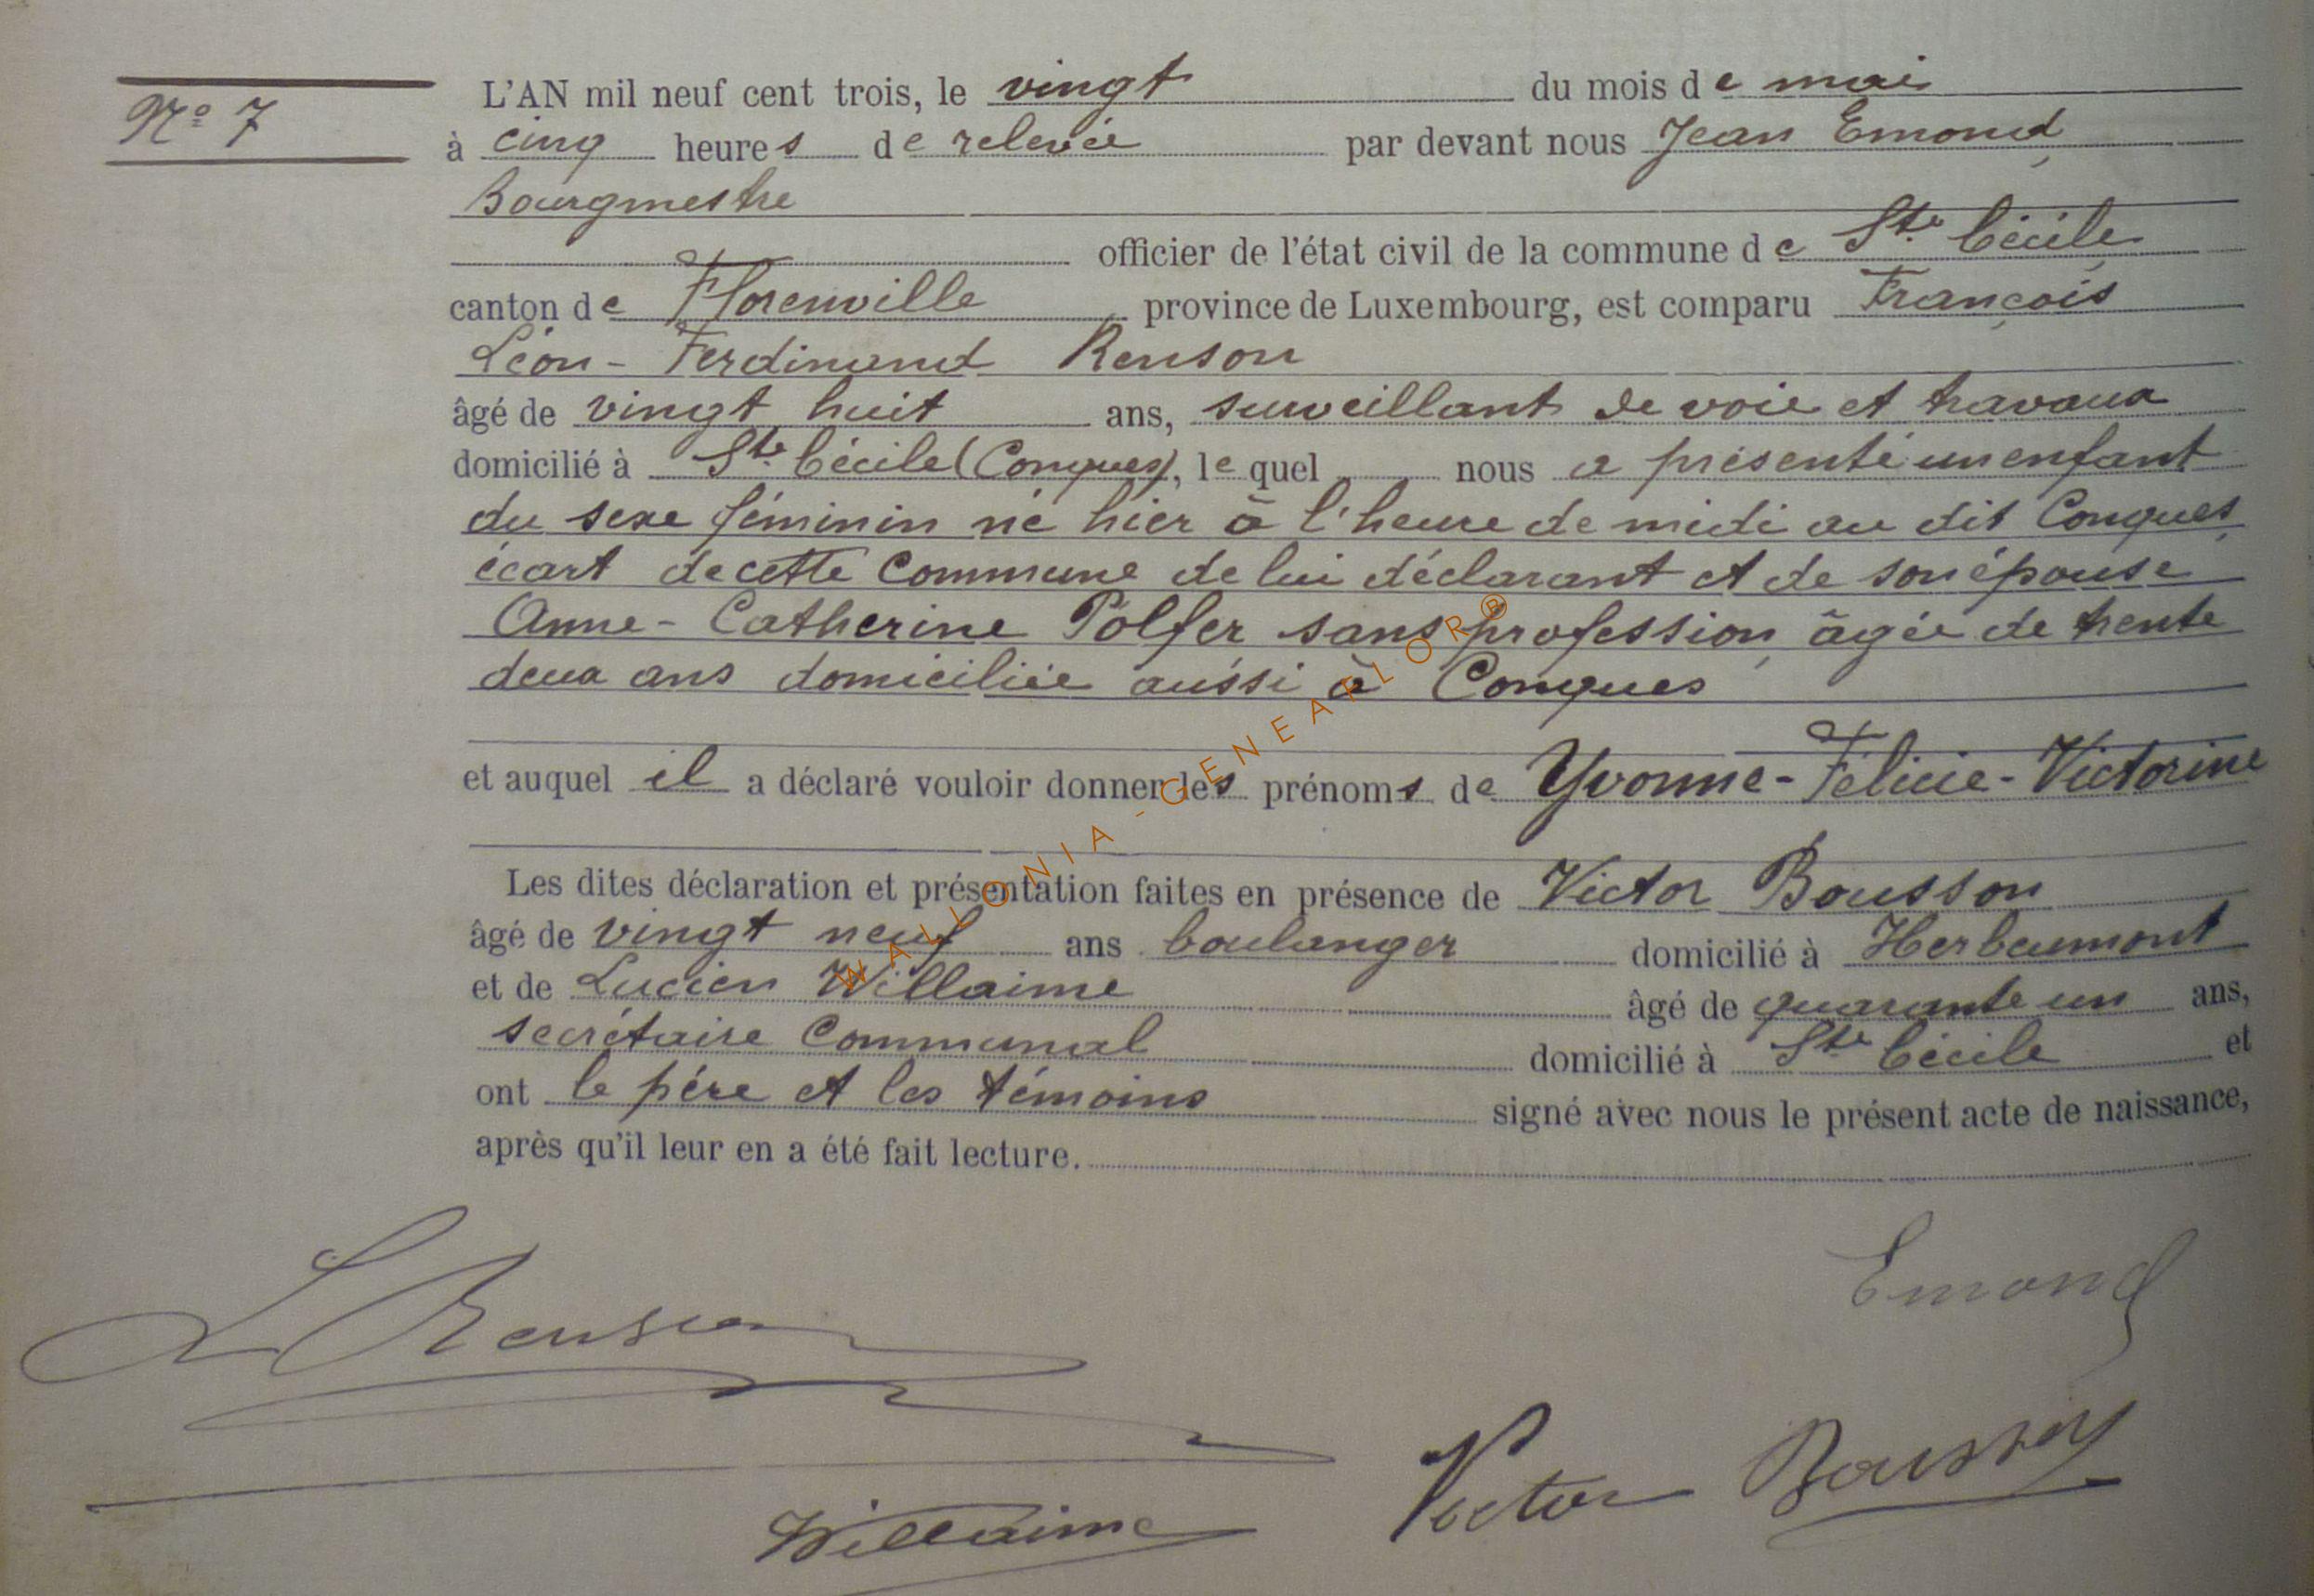 N° 7
L'AN mil neuf cent trois, le vingt du mois de mai
à cinq heures de relevée par devant nous Jean Emond,
Bourgmestre
officier de l'état civil de la commune de Ste Cécile,
canton de Florenville province de Luxembourg, est comparu François
Léon-Ferdinand Renson
âgé de vingt huit ans, surveillant de voie et travaux
domicilié à Ste Cécile (Conques), lequel nous a présenté un enfant
du sexe féminin né hier à l'heure de midi au dit Conques,
écart de cette Commune de lui déclarant et de son épouse
Anne-Catherine Polfer sans profession, âgée de trente
deux ans domiciliée aussi à Conques
et auquel il a déclaré vouloir donner les prénoms de Yvonne-Félicie-Victorine
Les dites déclaration et présentation faites en présence de Victor Bousson
âgé de vingt neuf ans boulanger domicilié à Herbeumont
et de Lucien Willaime âgé de quarante un ans,
secrétaire Communal domicilié à Ste Cécile et
ont le père et les témoins signé avec nous le présent acte de naissance,
après qu'il leur en a été fait lecture.
L Renson
Emond
Victor Bousson
Willaime
WALLONIA-GENEAFLOR®